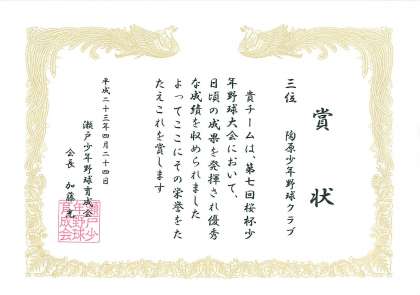 賞状
三位　陶原少年野球クラブ
貴チームは、第七回桜杯少
年野球大会において、
日頃の成果を発揮され優秀
な成績を収められました
よってここにその栄誉をた
たえこれを賞します
平成二十三年四月二十四日
瀬戸少年野球育成会
会長　加藤
瀬戸少
年野球
育成会